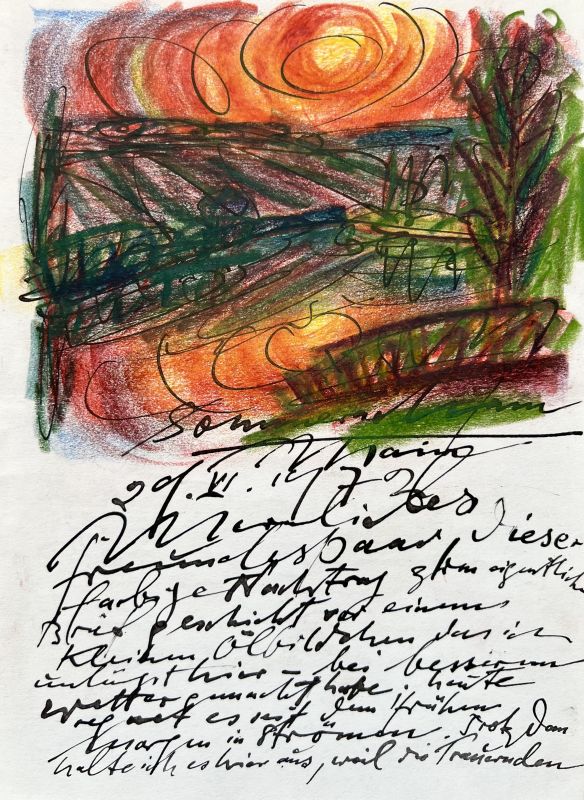 Sommerhausen
Main
29. VI. 1973
Mein liebes
Freundespaar, Dieser
farbige Nachtrag zum eigentlichen
Brief geschieht vor einem
kleinen Ölbildchen das ich
unlängst hier – bei besserem
Wetter gemacht habe, heute
regnet es seit dem frühen
Morgen in Strömen. Trotzdem
halte ich es hier aus, weil die Trauernden